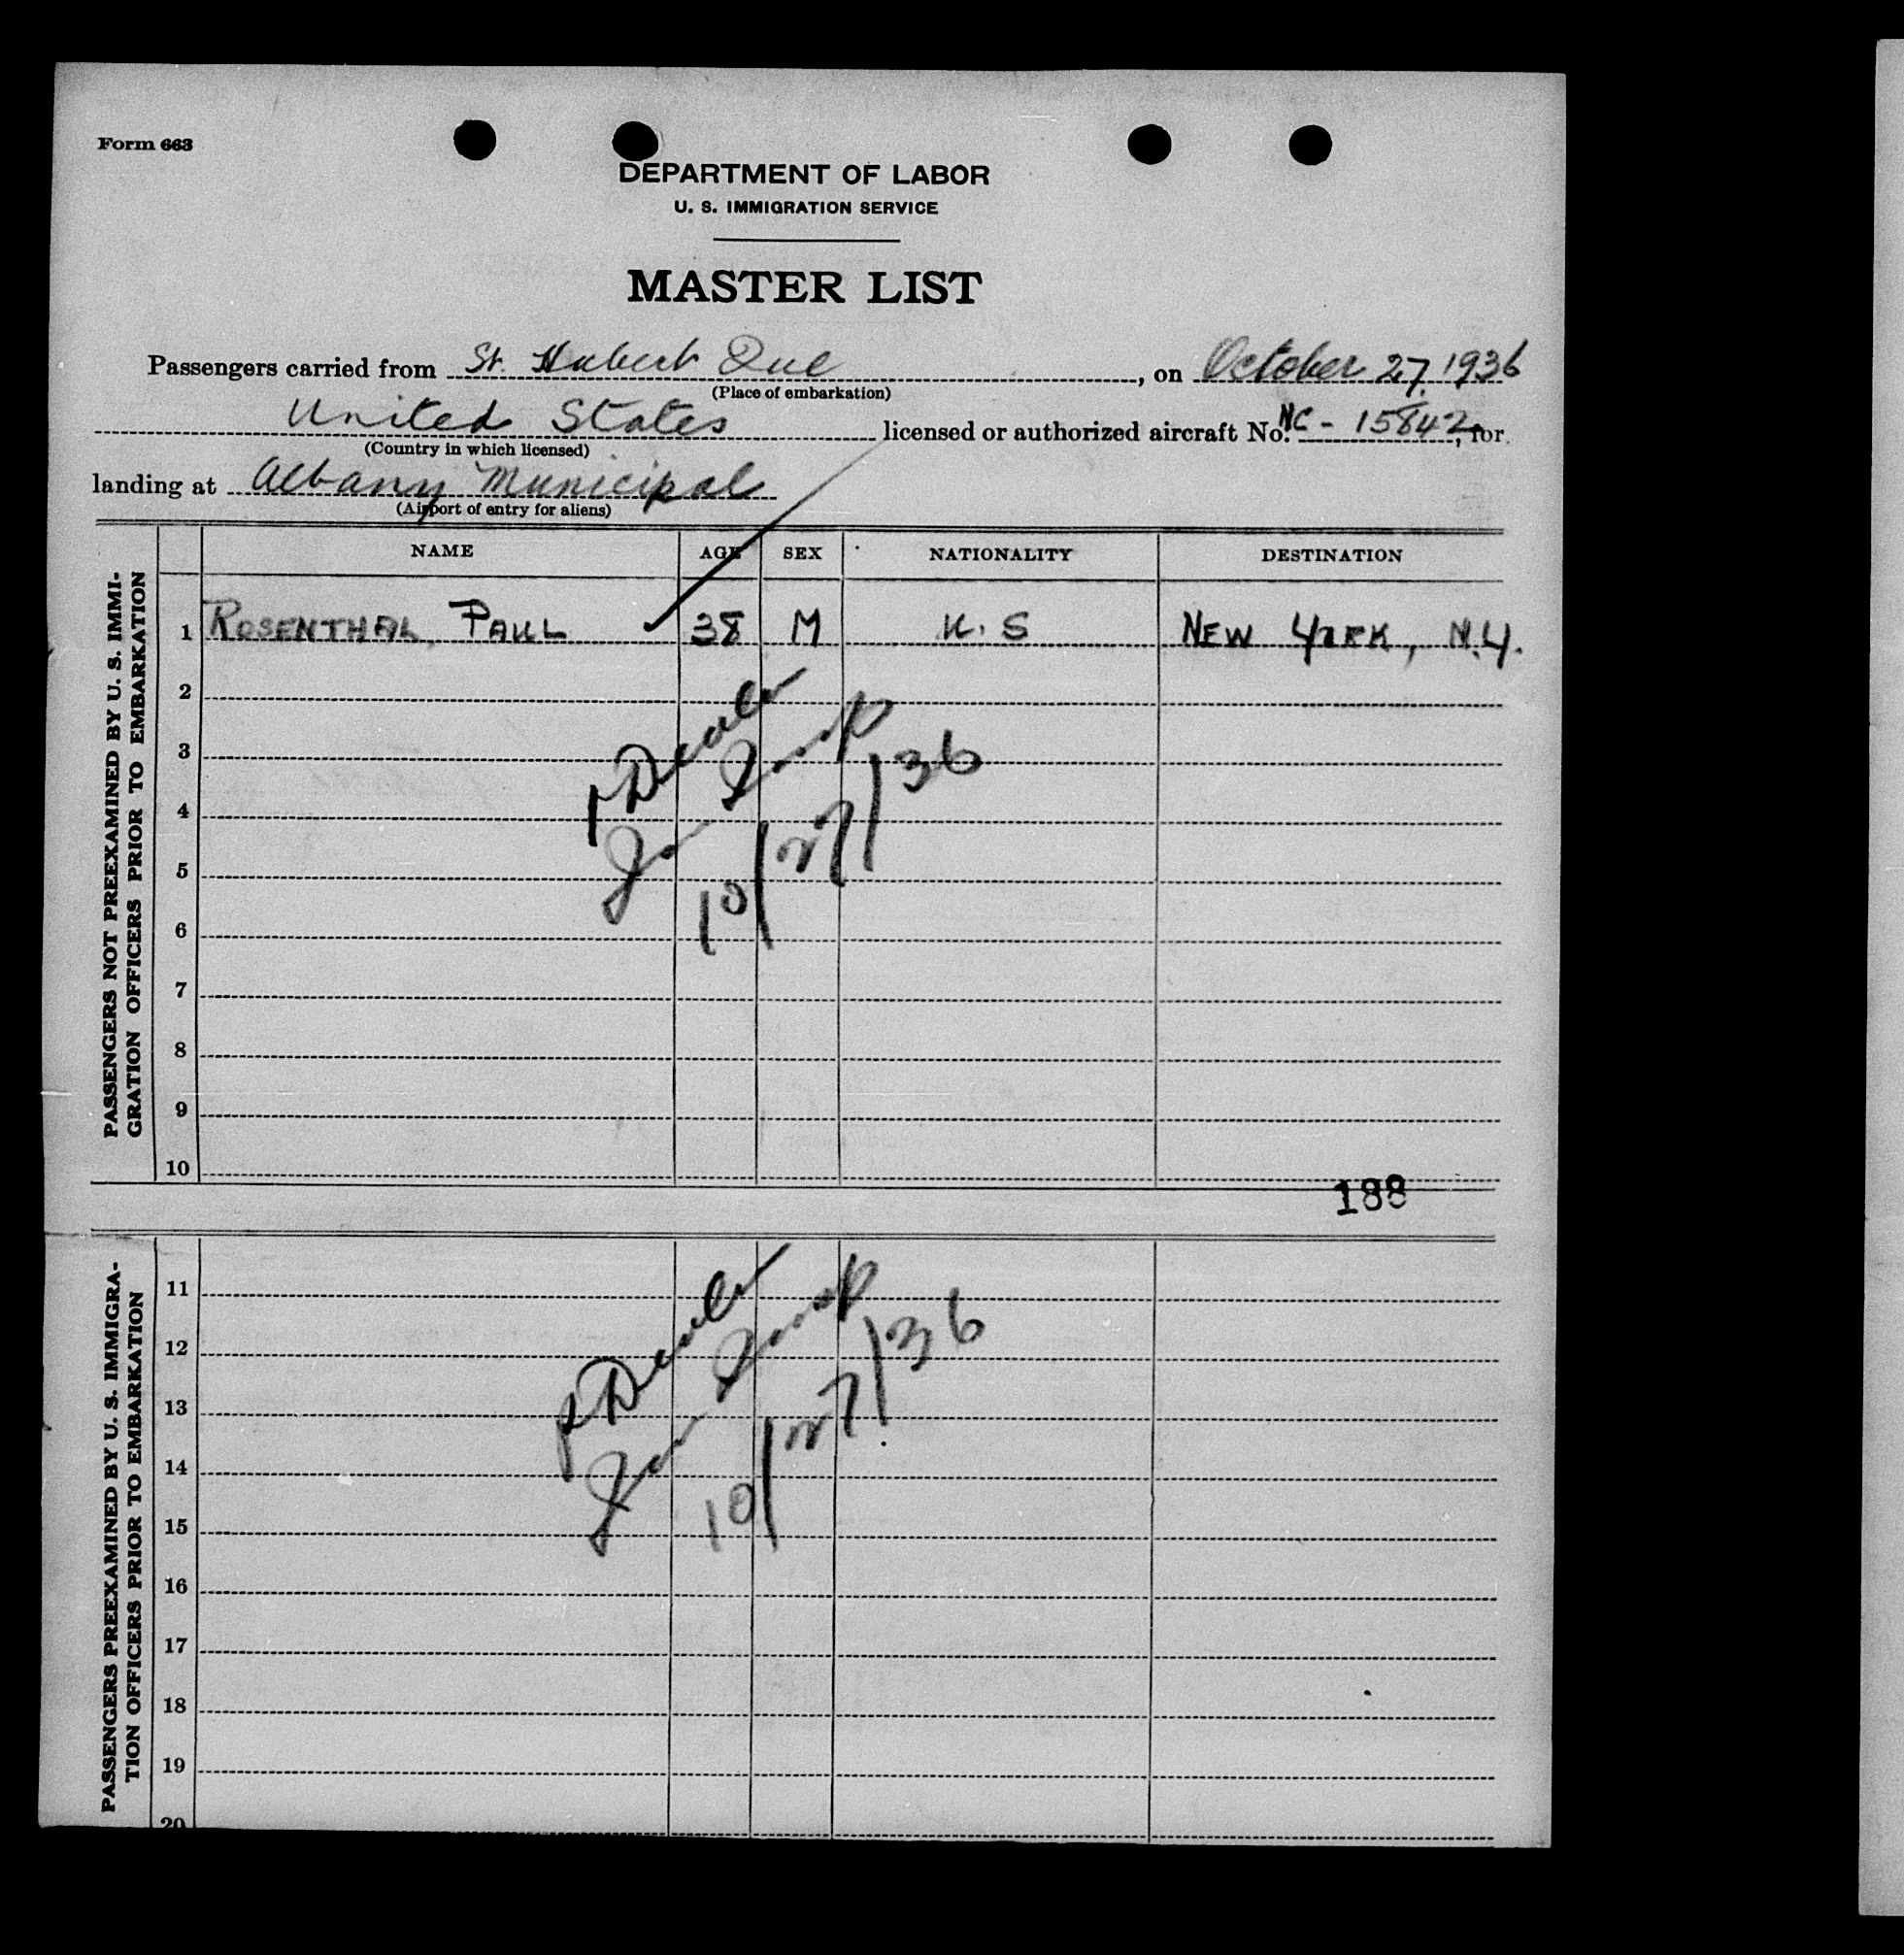 Form 663
DEPARTMENT OF LABOR
U. S. IMMIGRATION SERVICE
MASTER LIST
Passengers carried from St. Hubert Que, on October 27, 1936
(Place of embarkation)
United States licensed or authorized aircraft No. NC - 15842, for
(Country in which licensed)
landing at Albany Municipal
(Airport of entry for aliens)
NAME AGE SEX NATIONALITY DESTINATION
PASSENGERS NOT PREEXAMINED BY U. S. IMMI-
GRATION OFFICERS PRIOR TO EMBARKATION
1 ROSENTHAL, PAUL 38 M U.S NEW YORK, N.Y.
2
3
4
5
6
7
8
9
10
10/27/36
188
PASSENGERS PREEXAMINED BY U. S. IMMIGRA-
TION OFFICERS PRIOR TO EMBARKATION
11
12
13
14
15
16
17
18
19
20
10/27/36